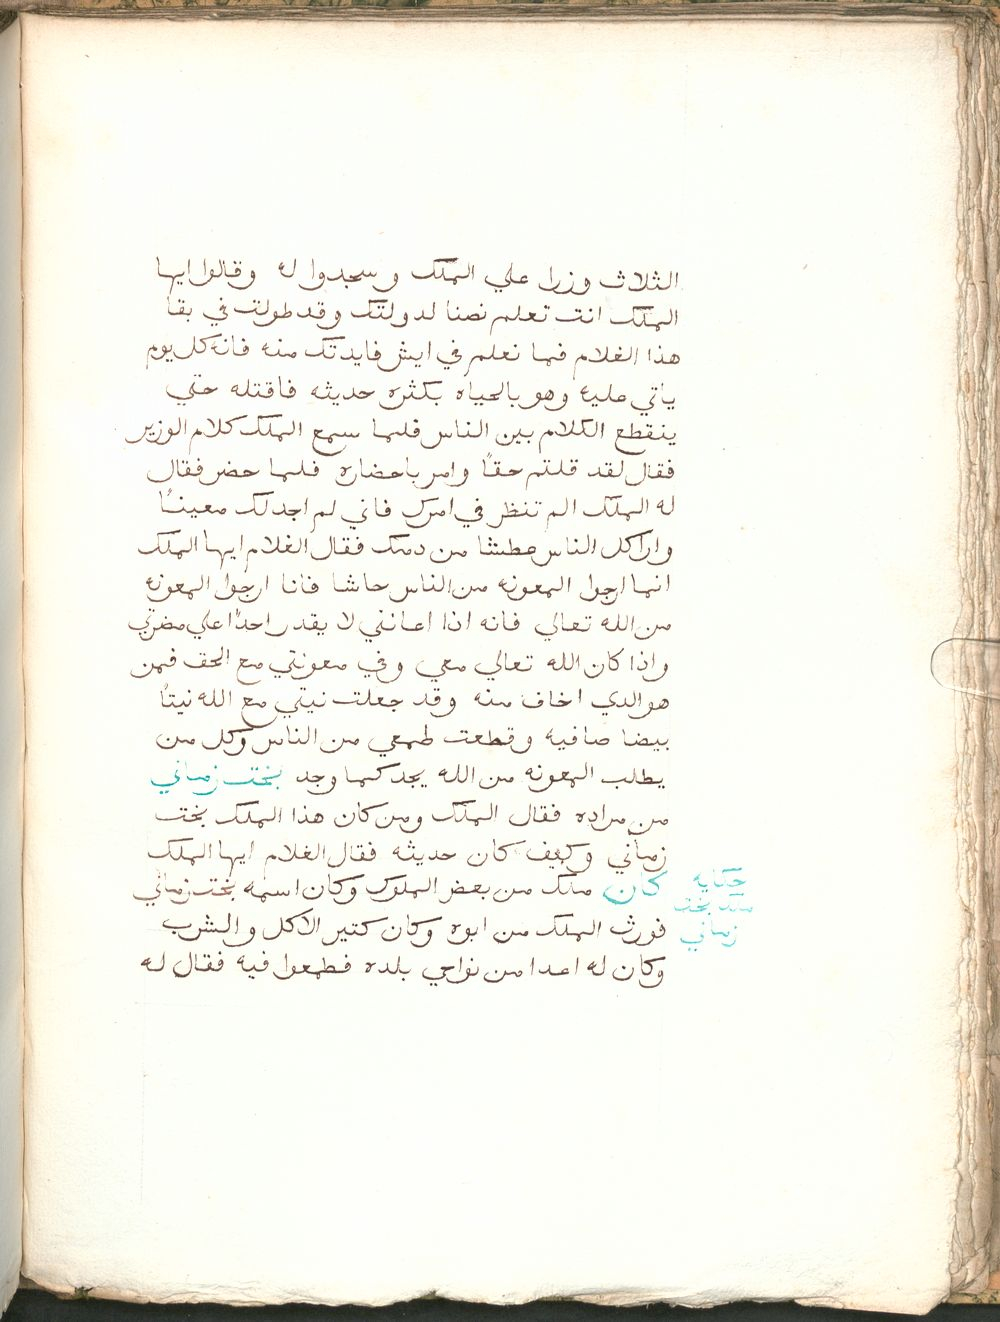 الثلاث وزرا علي الملك وسجدوا له وقالوا ايها
الملك انت تعلم نصنا لدولتك وقد طولت في بقا
هذا الغلام فما نعلم في ايش فايدتك منه فانه كل يوم
ياتي عليه وهو بالحياه بكثره حديثه فاقتله حتي
ينقطع الكلام بين الناس فلما سمع الملك كلام الوزير
فقال لقد قلتم حقاً وامر باحضاره فلما حضر فقال
له الملك الم تنظر في امرك فاني لم اجد لك معيناً
وارا كل الناس عطشا من دمك فقال الغلام ايها الملك
انما ارجوا المعونه من الناس حاشا فانا ارجوا المعونه
من الله تعالي فانه اذا اعانني لا يقدر احداً علي مضرتي
واذا كان الله تعالي معي وفي معونتي مع الحق فمن
هو الدي اخاف منه وقد جعلت نيتي مع الله نيتاً
بيضا صافيه وقطعت طمعي من الناس وكل من
يطلب المعونه من الله يجد كما وجد بخت زماني
من مراده فقال الملك ومن كان هذا الملك بخت
زماني وكيف كان حديثه فقال الغلام ايها الملك
كان ملك من بعض الملوك وكان اسمه بخت زماني
فورث الملك من ابوه وكان كتير الاكل والشرب
وكان له اعدا من نواحي بلده فطمعوا فيه فقال له
حكايه
ملك بخت
زماني